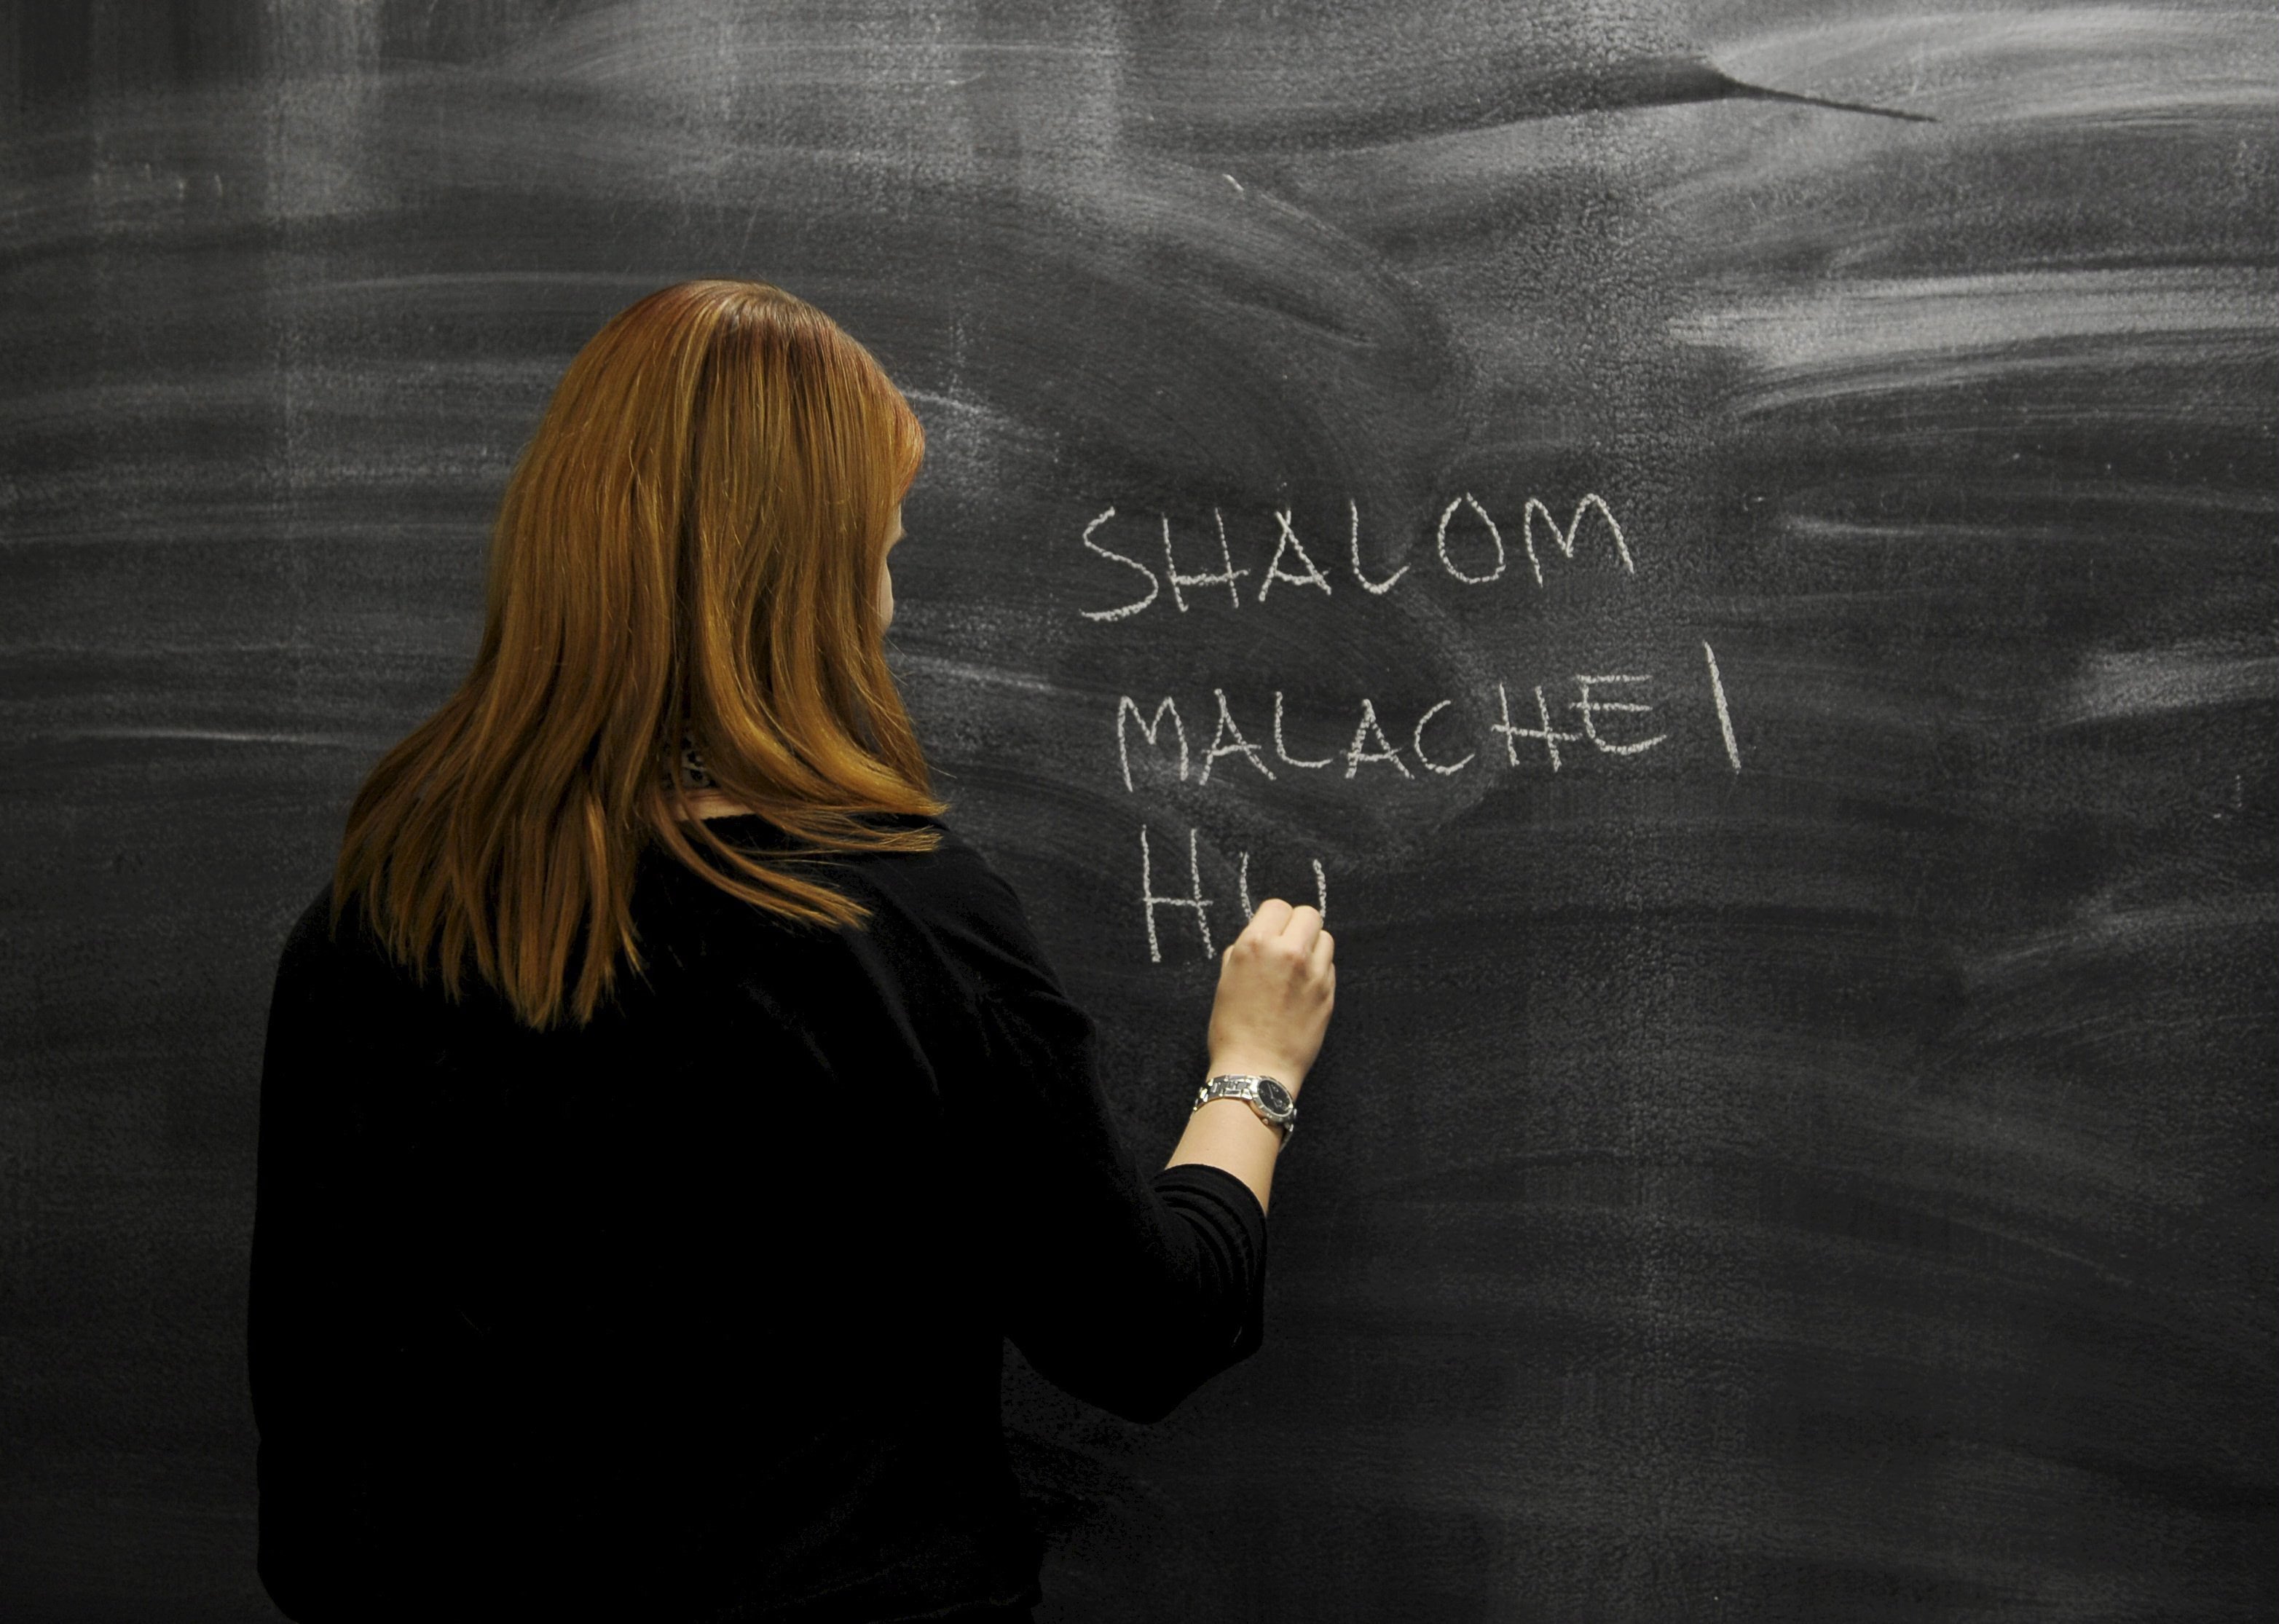 SHALOM
MALACHEI
HU